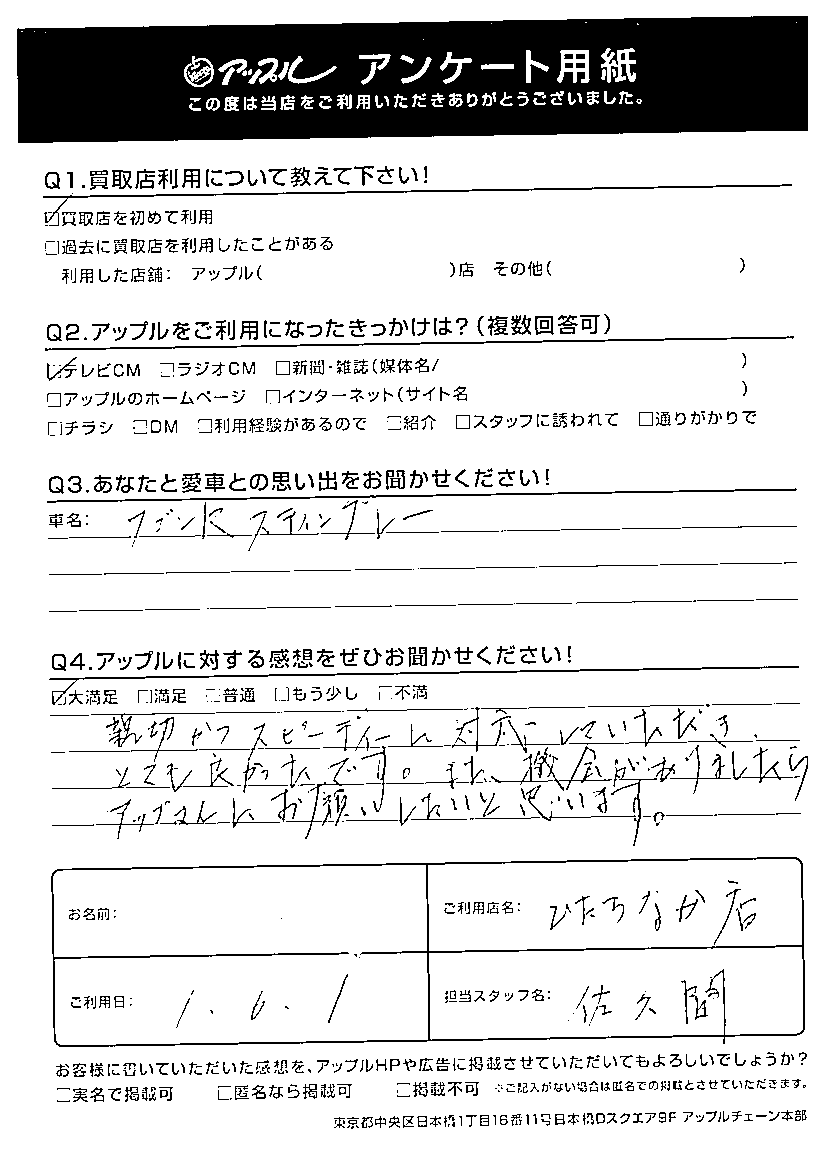 アップル アンケート用紙
この度は当店をご利用いただきありがとうございました。
Q1.買取店利用について教えて下さい!
☑買取店を初めて利用
□過去に買取店を利用したことがある
利用した店舗: アップル( )店 その他( )
Q2.アップルをご利用になったきっかけは?(複数回答可)
☑テレビCM □ラジオCM □新聞・雑誌(媒体名/ )
□アップルのホームページ □インターネット(サイト名 )
□チラシ □DM □利用経験があるので □紹介 □スタッフに誘われて □通りがかりで
Q3.あなたと愛車との思い出をお聞かせください!
車名: ワゴンR スティングレー
Q4.アップルに対する感想をぜひお聞かせください!
☑大満足 □満足 □普通 □もう少し □不満
親切かつスピーディーに対応していただき、
とても良かったです。また、機会がありましたら
アップルさんにお願いしたいと思います。
お名前:
ご利用店名: ひたちなか店
ご利用日: 1.6.1
担当スタッフ名: 佐久間
お客様に書いていただいた感想を、アップルHPや広告に掲載させていただいてもよろしいでしょうか?
□実名で掲載可 □匿名なら掲載可 □掲載不可 ※ご記入がない場合は匿名での掲載とさせていただきます。
東京都中央区日本橋1丁目16番11号日本橋Dスクエア9F アップルチェーン本部